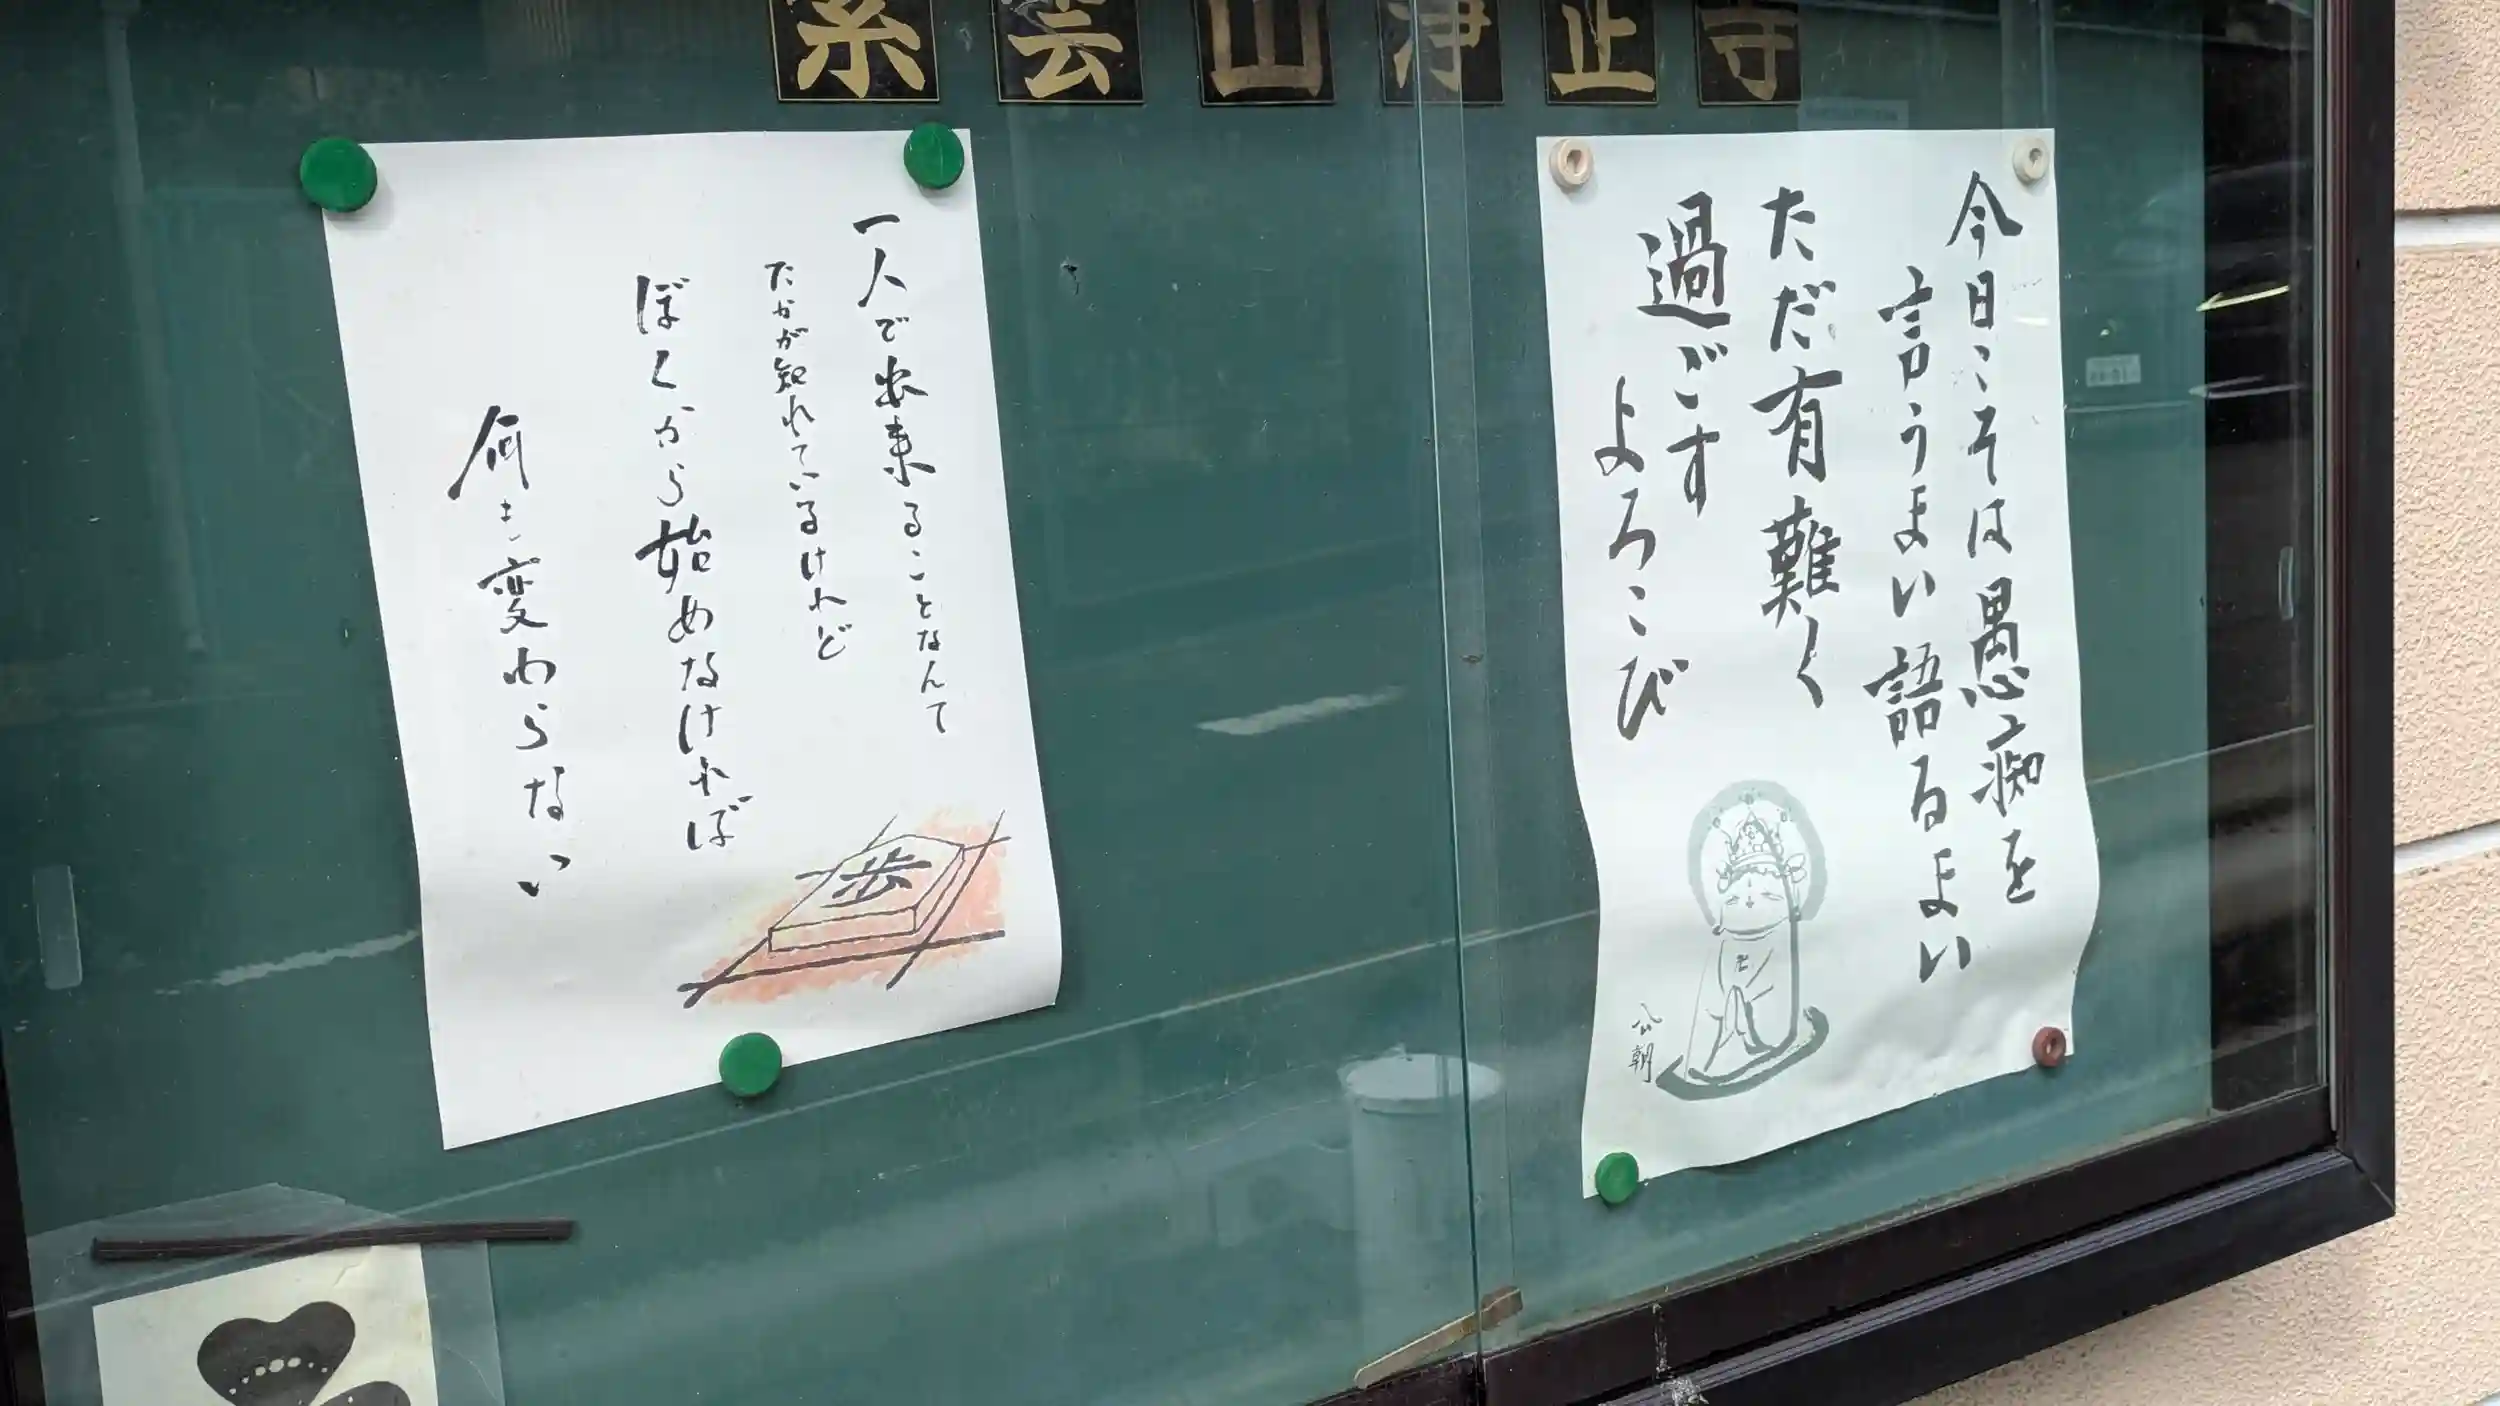 紫雲山浄正寺
今日こそは愚痴を
言うまい語るよい
ただ有難く
過ごす
よろこび
公朝
卍
一人で出来ることなんて
たかが知れているけれど
ぼくから始めなければ
何も変わらない
歩